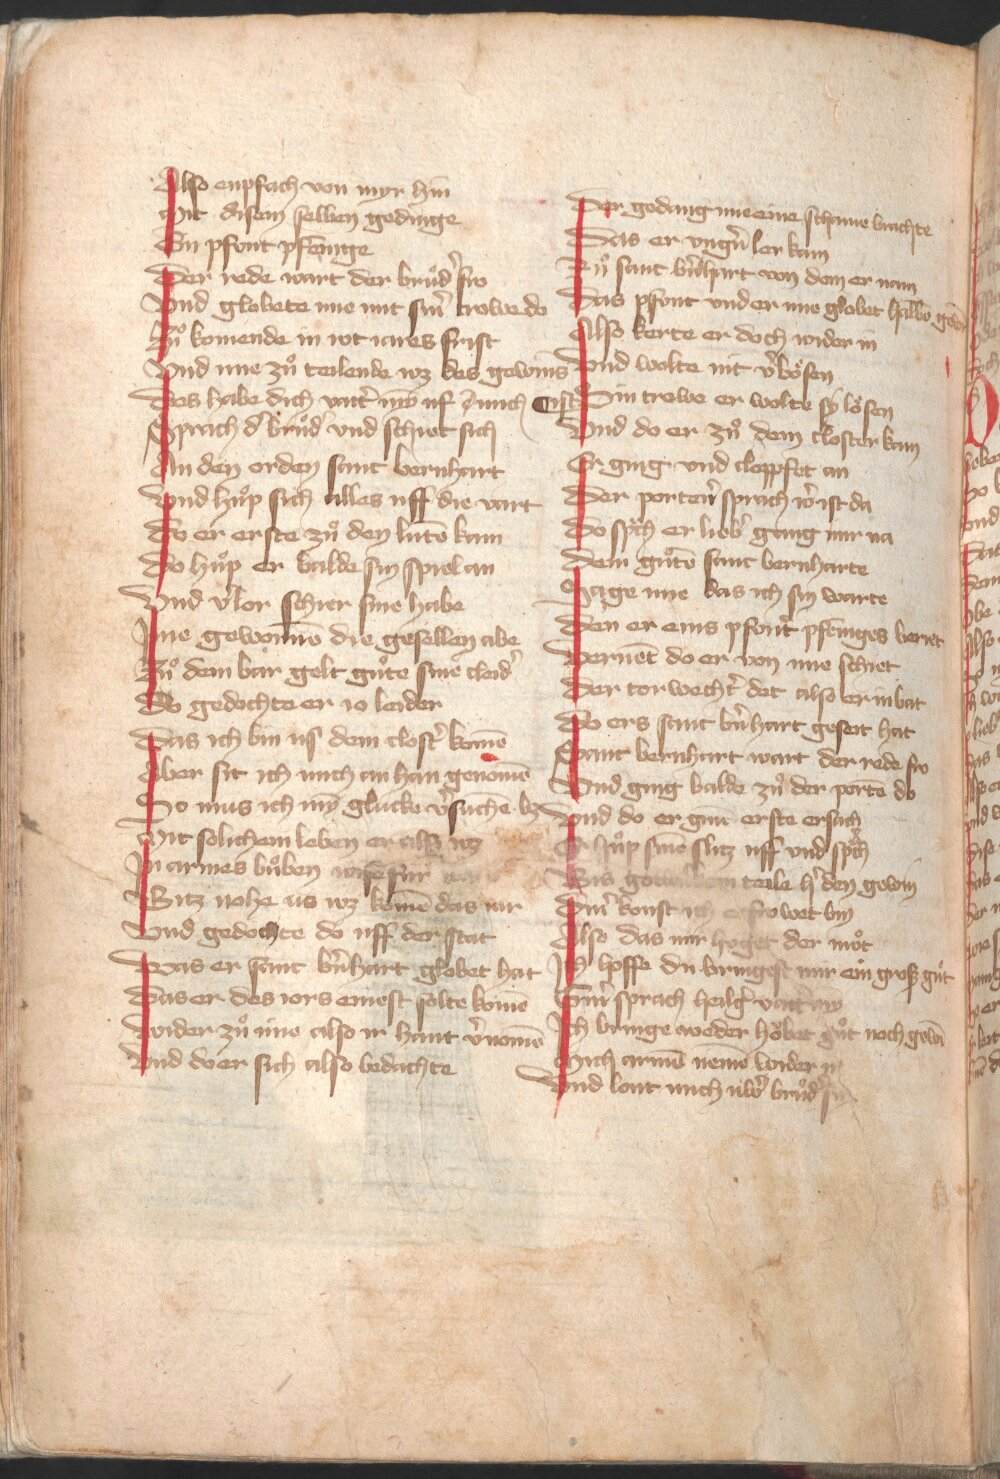 Also enpfach von myr hin
Mit disem selben gedinge
Ein pfont pfennige
Der rede wart der brůd' fro
Vnd globete ime mit sin' trowe do
Zů komende in iores frist
Vnd ime zů teilende wz des gewins ist
Des habe dich vatt' min uf mich
Sprach d' brůd' vnd schiet sich
An den orden sant bernhart
Vnd hůp sich alles uff die vart
Do er erste zů den lutē kam
Do hůp er balde sin spiel an
Vnd v'lor schier sine habe
Ime gewonnē die gesellen abe
Zů dem bar gelt gůte sine cleid'
Do gedochte er io leider
Das ich bin us dem clost' komē
Aber sit ich mich an han genomē
So mus ich mȳ glucke v'suchē bz
Mit solichem leben er also wz
In armes bůben
Bitz nohe us wz komē das iar
Vnd gedochte do uff der stat
Was er sant b'nhart globet hat
Das er des iors einest solte komē
Wider zů ime also ir hant v'nomē
Vnd do er sich also bedachte
Der gedang ime eine schame brachte
Das er vng'n ler kam
Zů sant b'nhart von dem er nam
Das pfont vnd er ime globet halbē gewin
Also kerte er doch wider in
Vnd wolte nit v'bősen
Sin trowe er wolte sy lősen
Vnd do er zů dem closter kam
Er ging vnd cloppfet an
Der porten' sprach w' ist da
Do sp'ch er lieb' gang mir na
Dem gůtē sant bernharte
Sage ime das ich sin warte
Den er eins pfont pfenniges beriet
Bernēt do er von ime schiet
Der torwecht' det also er in bat
Do ers sant b'nhart geseit hat
Sant bernhart wart der rede fro
Vnd ging balde zů der portē do
Vnd do er ginē erste ersach
Er hůp sinē slitz uff vnd sp'ch
teile h' den gewin
Din' konst ich erfrowet bin
Also das mir hoget der můt
Ich hoffe du bringest mir ein groß gůt
Sin' sprach heilg' vatt' min
Ich bringe weder hőbet gůt noch gewin
Mich armē nemē wider in
Vnd lont mich uwer brůd' sin